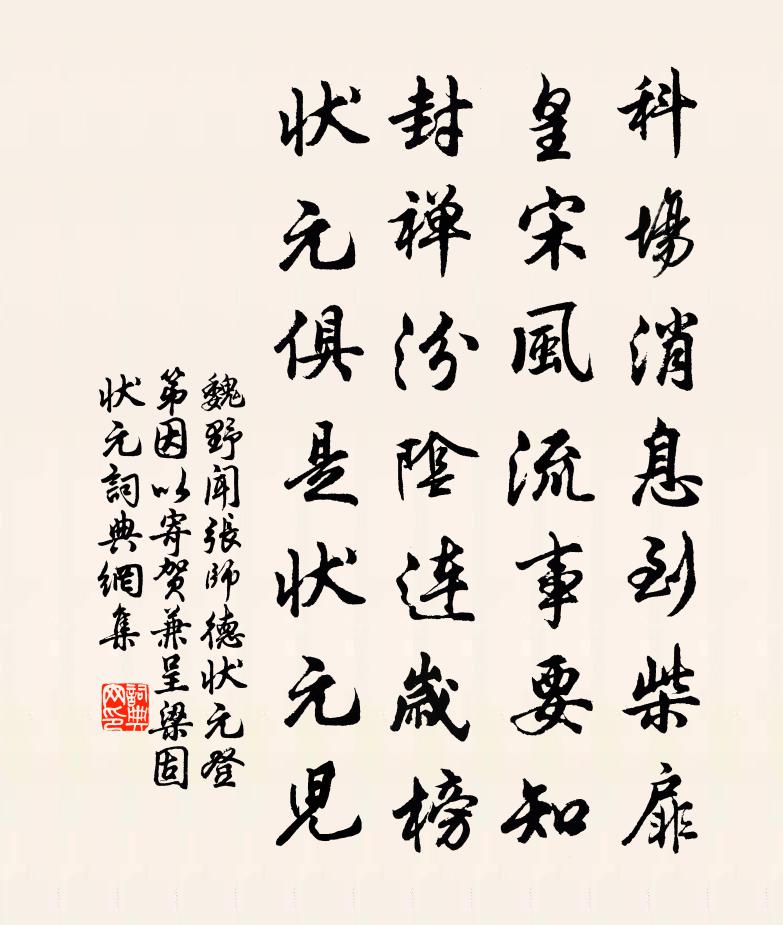 科場消息到柴扉
皇宋風流事要知
封禅汾陰连歲榜
状元俱是状元児
魏野闻張師德状元登
第因以寄贺兼呈梁固
状元詞典網集
詞典网印